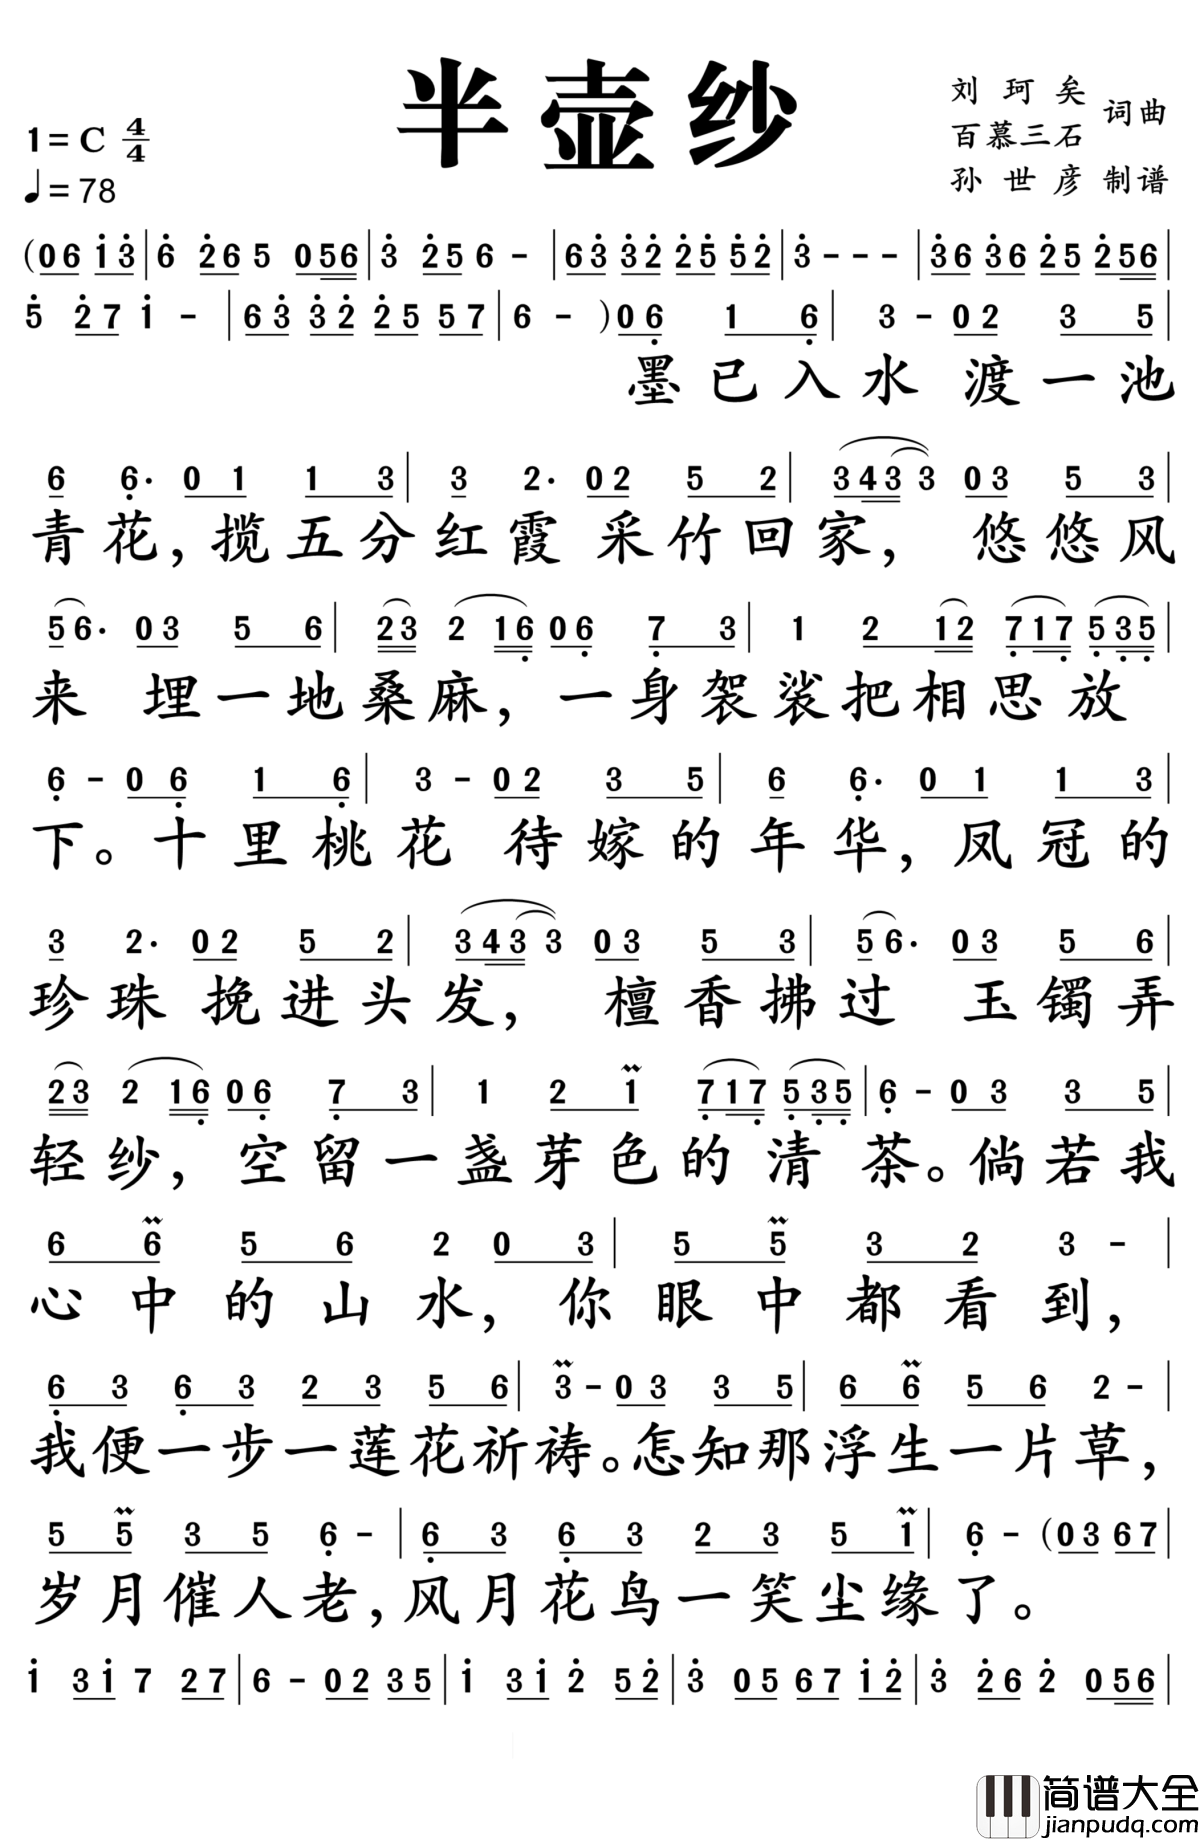 半壶纱
刘珂矣
百慕三石 词曲
孙世彦 制谱
1=C 4/4
♩=78
(06 i3̇|6̇ 2̇6 5 056|3̇ 2̇5 6 -|63̇ 3̇2̇ 2̇5 5̇2̇|3̇---|3̇6 3̇6 2̇5 2̇56|
5̇ 2̇7 i -|63̇ 3̇2̇ 2̇5 57|6 - )06̣ 1 6̣|3 - 02 3 5|
墨已入水 渡一池
6 6̣· 01 1 3|3 2· 02 5 2|3433 03 5 3|
青花,揽五分红霞 采竹回家, 悠悠风
56· 03 5 6|23 2 16̣ 06̣ 7̣ 3|1 2 12 7̣17̣ 5̣3̣5̣|
来 埋一地桑麻,一身袈裟把相思放
6̣ - 06̣ 1 6̣|3 - 02 3 5|6 6̣· 01 1 3|
下。十里桃花 待嫁的年华,凤冠的
3 2· 02 5 2|3433 03 5 3|56· 03 5 6|
珍珠 挽进头发, 檀香拂过 玉镯弄
23 2 16̣ 06̣ 7̣ 3|1 2 1 7̣17̣ 5̣3̣5̣|6̣ - 03 3 5|
轻纱,空留一盏芽色的清茶。倘若我
6 6 5 6 2 0 3|5 5 3 2 3 -|
心中的山水,你眼中都看到,
6̣ 3 6̣ 3 2 3 5 6|3 - 03 3 5|6 6 5 6 2 -|
我便一步一莲花祈祷。怎知那浮生一片草,
5 5 3 5 6̣ -|6̣ 3 6̣ 3 2 3 5 1|6̣ - (03 67|
岁月催人老,风月花鸟一笑尘缘了。
i 3i 7 27|6 - 02 35|i 3i 2̇ 52̇|3̇ 05 67 i2̇|3̇ 2̇6 2̇ 056|
简谱大全
jianpudq.com